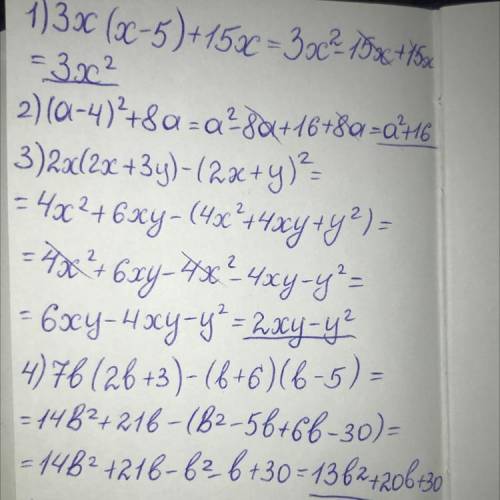 1) 3x(x-5)+15x=3x²-15x+15x
=3x²
2) (a-4)²+8a=a²-8a+16+8a=a²+16
3) 2x(2x+3y)-(2x+y)²=
=4x²+6xy-(4x²+4xy+y²)=
=4x²+6xy-4x²-4xy-y²=
=6xy-4xy-y²=2xy-y²
4) 7b(2b+3)-(b+6)(b-5)=
=14b²+21b-(b²-5b+6b-30)=
=14b²+21b-b²-b+30=13b²+20b+30